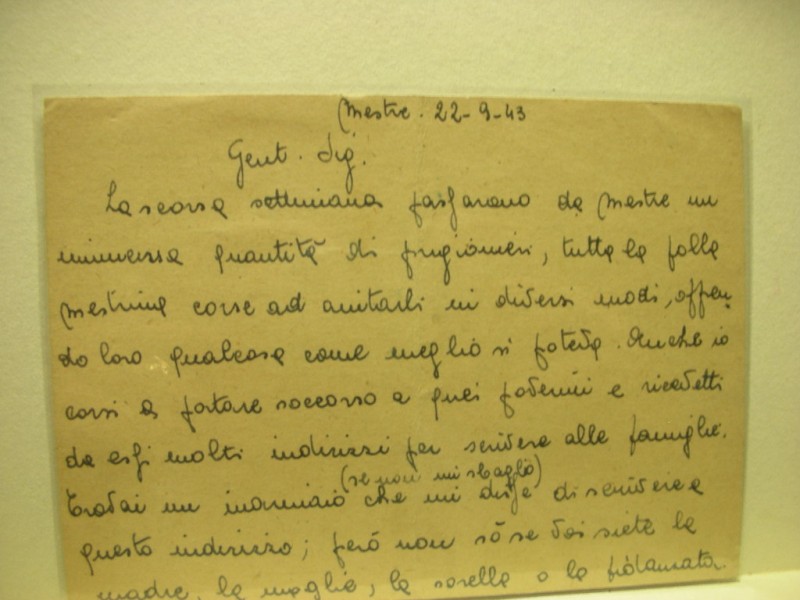 Mestre. 22-9-43
Gent. Sig.
La scorsa settimana passarono da Mestre un
immensa quantità di prigionieri, tutta la folla
mestrina corse ad aiutarli in diversi modi, offren
do loro qualcosa come meglio si poteva. Anche io
corsi a portare soccorso a quei poverini e ricevetti
da essi molti indirizzi per scrivere alle famiglie.
(se non mi sbaglio)
Trovai un marinaio che mi disse di scrivere a
questo indirizzo; però non sò se voi siete la
madre, la moglie, la sorella o la fidanzata.